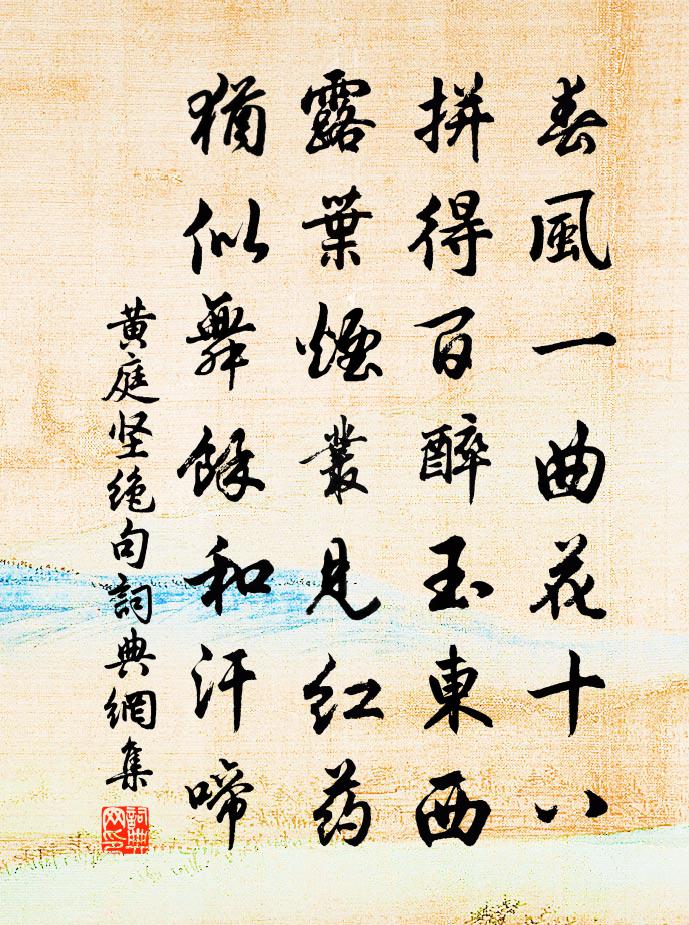 春風一曲花十八
拼得百醉玉東西
露葉煙叢見红药
猶似舞餘和汗啼
黄庭坚绝句詞典網集
詞典網印